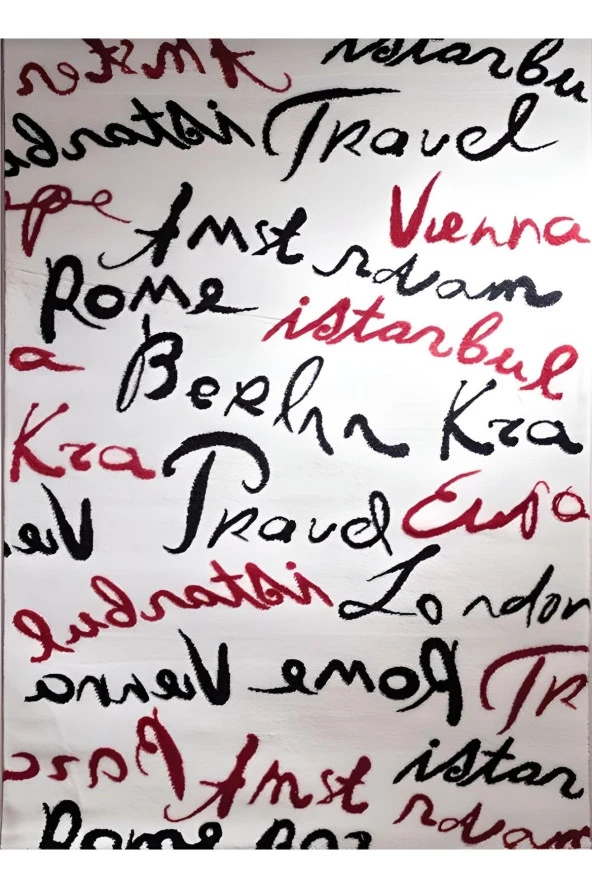 Amster istanbu
istanbul Travel
ope Vienna
Amst
rdam
Rome istanbul
a Berlin Kra
Kra
Travel Euro
Vien
istanbul London
Vienna Rome Tr
Paris Amst istan
rdam
Rome